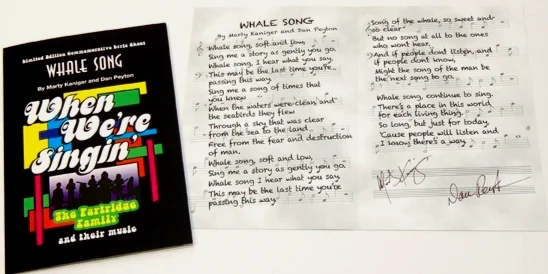 Limited Edition Commemorative Lyric Sheet
WHALE SONG
By Marty Kaniger and Dan Peyton
When
We're
Singin'
The Partridge
Family
and their music
WHALE SONG
By Marty Kaniger and Dan Peyton
Whale song, soft and low,
Sing me a story as gently you go.
Whale song, I hear what you say,
This may be the last time you're
passing this way.
Sing me a song of times that
you knew
When the waters were clean and
the seabirds they flew
Through a sky that was clear
from the sea to the land
Free from the fear and destruction
of man.
Whale song, soft and low,
Sing me a story as gently you go.
Whale song I hear what you say
This may be the last time you're
passing this way
Song of the whale, so sweet and
so clear
But no song at all to the ones
who wont hear.
And if people dont listen, and
if people dont know,
Might the song of the man be
the next song to go.
Whale song, continue to sing.
There's a place in this world,
for each living thing.
So long, but just for today,
'Cause people will listen and
I know there's a way.